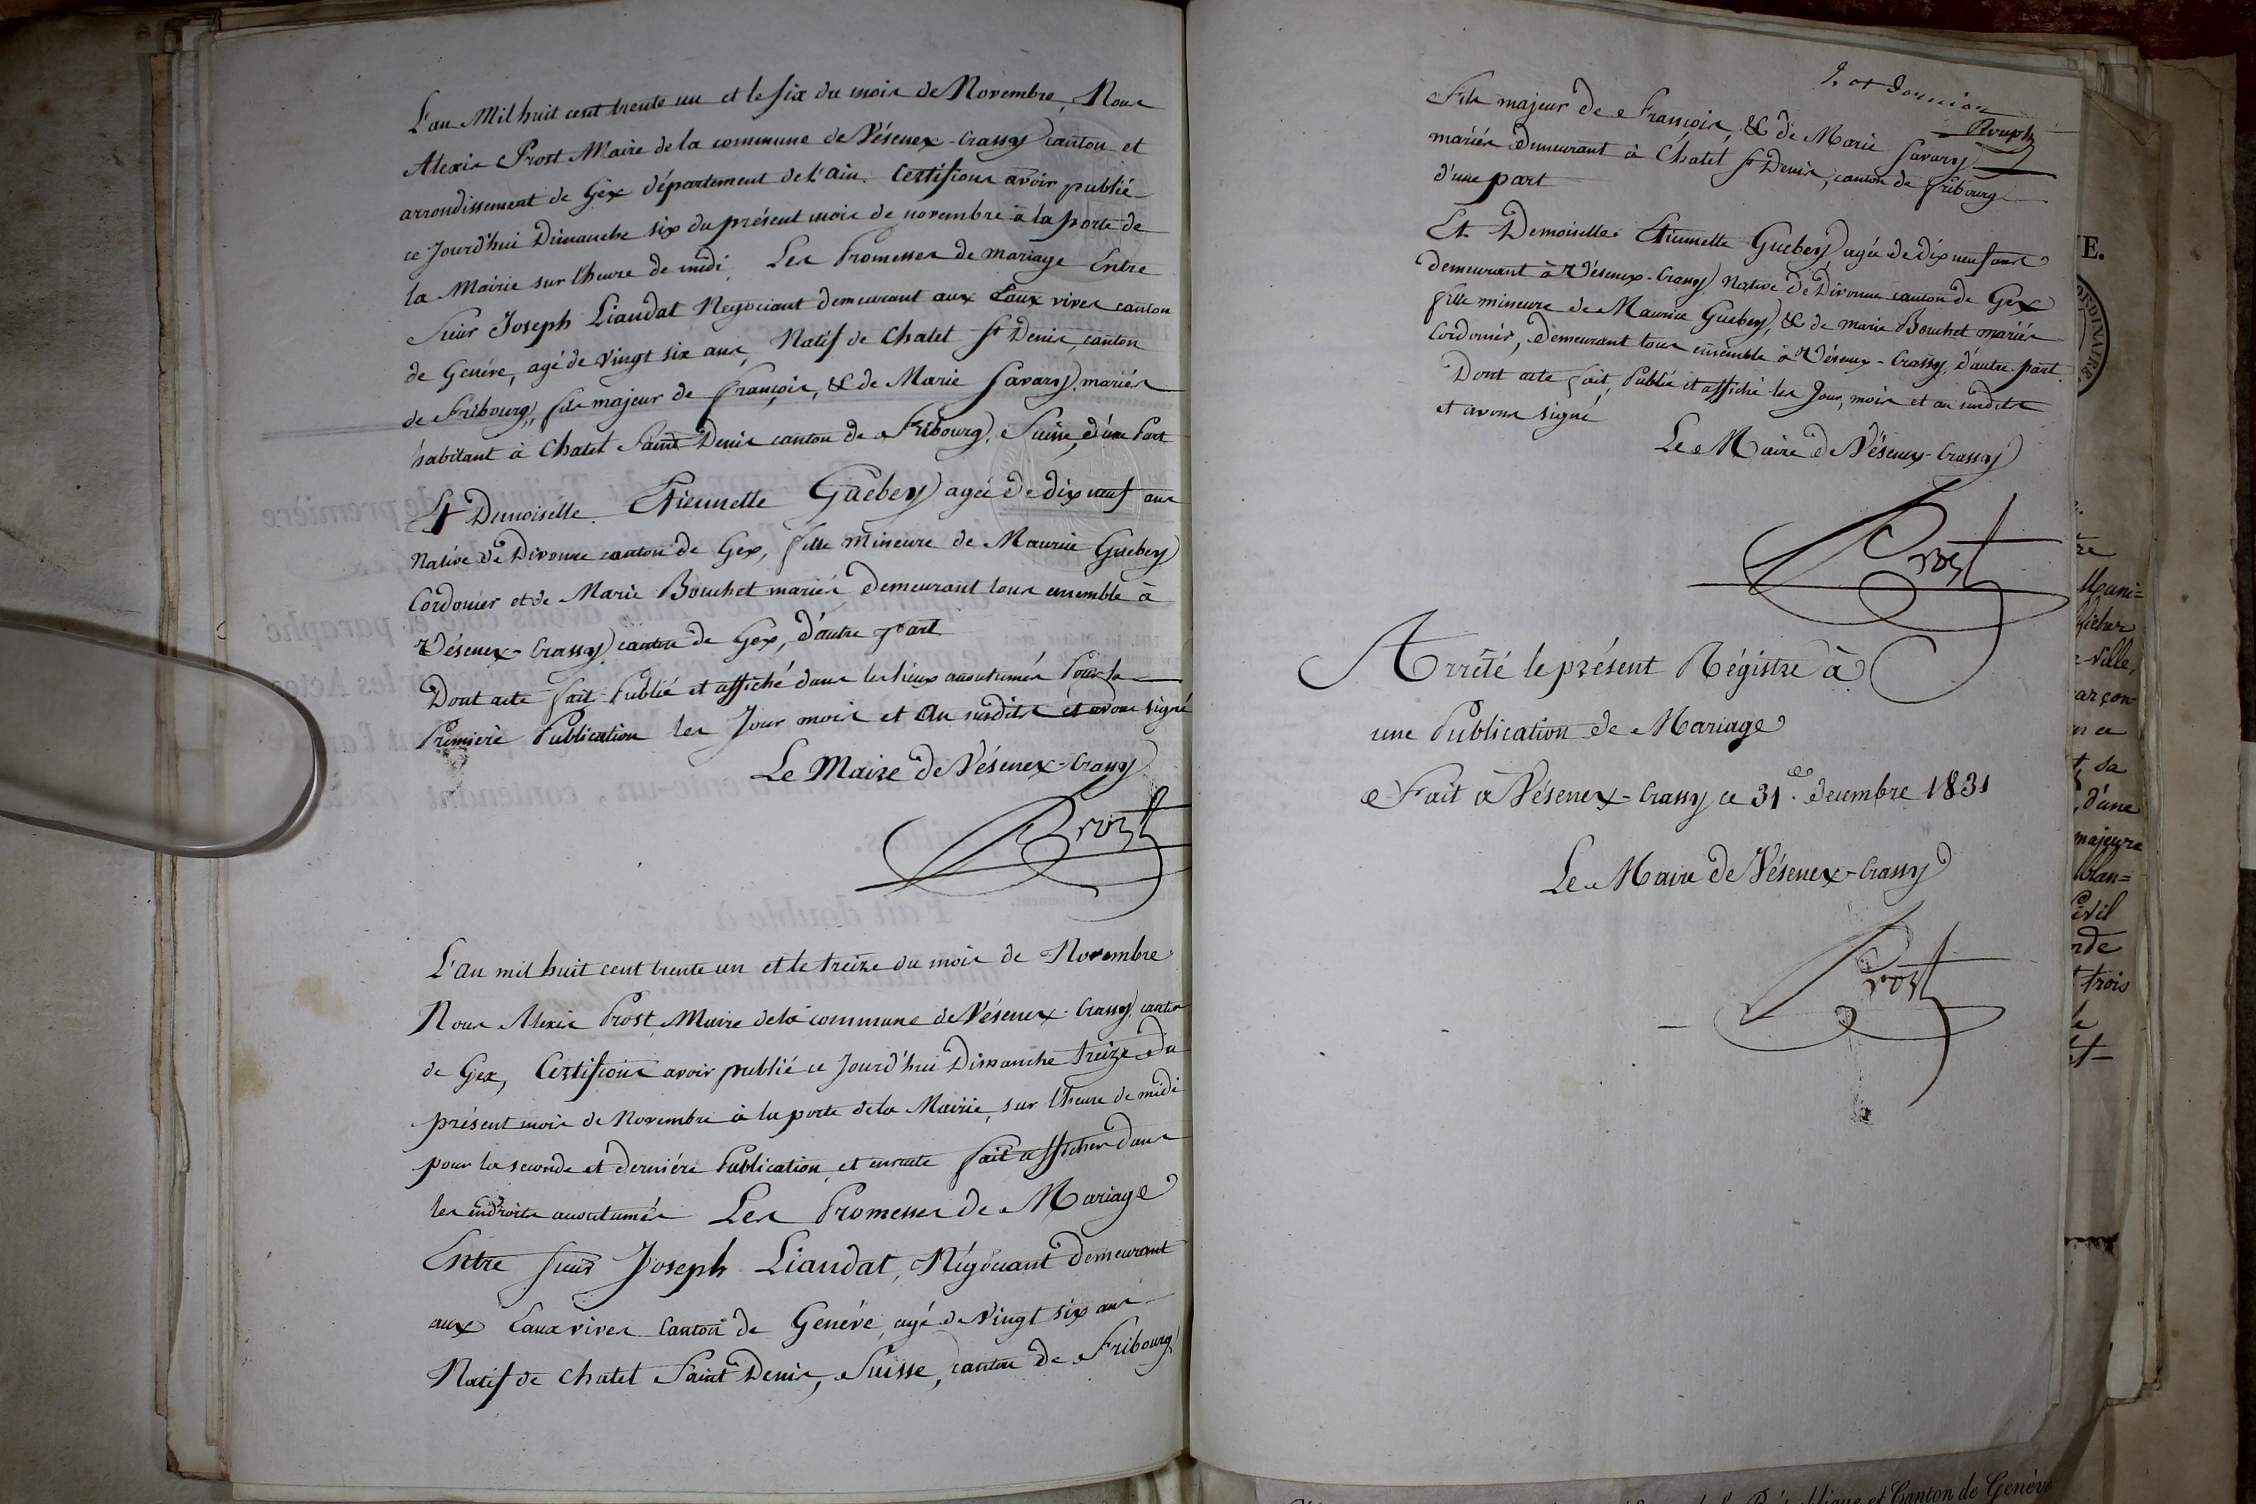 L'an Mil huit cent trente un et le six du mois de Novembre, Nous
Alexis Prost Maire de la commune de Vésenex-Crassy canton et
arrondissement de Gex département de l'ain. Certifions avoir publié
ce Jourd'hui Dimanche six du présent mois de novembre à la porte de
la Mairie sur l'heure de midi, Les Promesses de mariage Entre
Sieur Joseph Liaudat Negociant demeurant aux Eaux vives canton
de Genéve, agé de vingt six ans, Natif de Chatel St Denis, canton
de Fribourg, fils majeur de françois, & de Marie Savary mariés
habitant à Chatel Saint Denis canton de Fribourg, Suisse, d'une Part
Et Demoiselle Etiennette Guebey agée de dix neuf ans
Native de Divonne canton de Gex, fille Mineure de Maurice Guebey
Cordonier et de Marie Bouchet mariés demeurant tous ensemble à
Vésenex-Crassy canton de Gex, d'autre part
Dont acte fait Publié et affiché dans les lieux accoutumés Pour la
Premiere Publication les Jour mois et an susdits et avons signé
Le Maire de Vésenex-Crassy
Prost
L'an mil huit cent trente un et le treize du mois de Novembre
Nous Alexis Prost Maire de la commune de Vésenex-Crassy, canton
de Gex, Certifions avoir publié ce Jourd'hui Dimanche treize du
présent mois de Novembre à la porte de la Mairie, sur l'heure de midi
pour la seconde et derniére Publication, et ensuite fait afficher dans
les endroits accoutumés Les Promesses de Mariage
Entre Sieur Joseph Liaudat, Négociant demeurant
aux Eaux vives Canton de Genéve, agé de Vingt six ans
Natif de Chatel Saint Denis, Suisse, canton de Fribourg
2 et dernier
Fils majeur de Francois, & de Marie Savary
mariés demeurant à Chatel St Denis, canton de fribourg
d'une part
Et Demoiselle Etiennette Guebey agée de dix neuf ans
demeurant à Vésenex-Crassy Native de Divonne canton de Gex
fille mineure de Maurice Guebey, & de marie Bouchet mariés
Cordonier, demeurant tous ensemble à Vésenex-Crassy, d'autre part.
Dont acte fait, Publié et affiché les Jour, mois et an susdits
et avons signé
Le Maire de Vésenex-Crassy
Prost
Arrêté le présent Régistre à
une Publication de Mariage
Fait à Vésenex-Crassy ce 31. decembre 1831
Le Maire de Vésenex-Crassy
Prost
E.
ORDINAIRE.
Muni=
e-ville,
garçon
t sa
, d'une
majeure
Civil
t trois
République et Canton de Genève